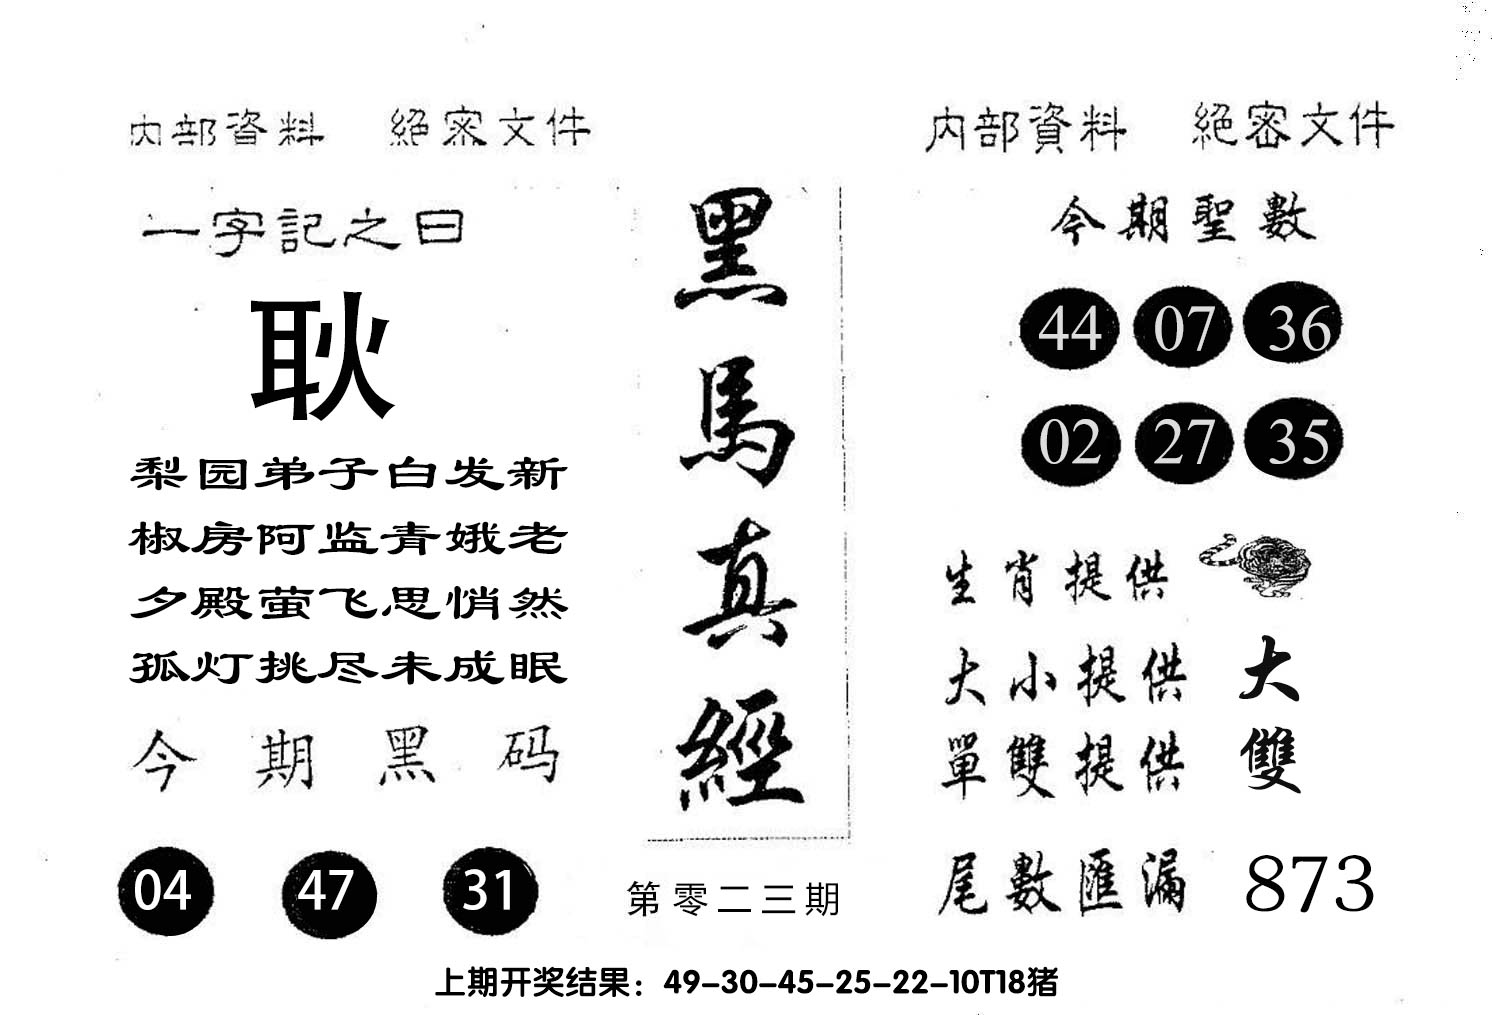 内部資料 絕密文件
一字記之曰
耿
梨园弟子白发新
椒房阿监青娥老
夕殿萤飞思悄然
孤灯挑尽未成眠
今期黑码
04 47 31
黑馬真經
第零二三期
内部資料 絕密文件
今期聖數
44 07 36
02 27 35
生肖提供
大小提供 大
單雙提供 雙
尾數匯漏 873
上期开奖结果：49-30-45-25-22-10T18猪